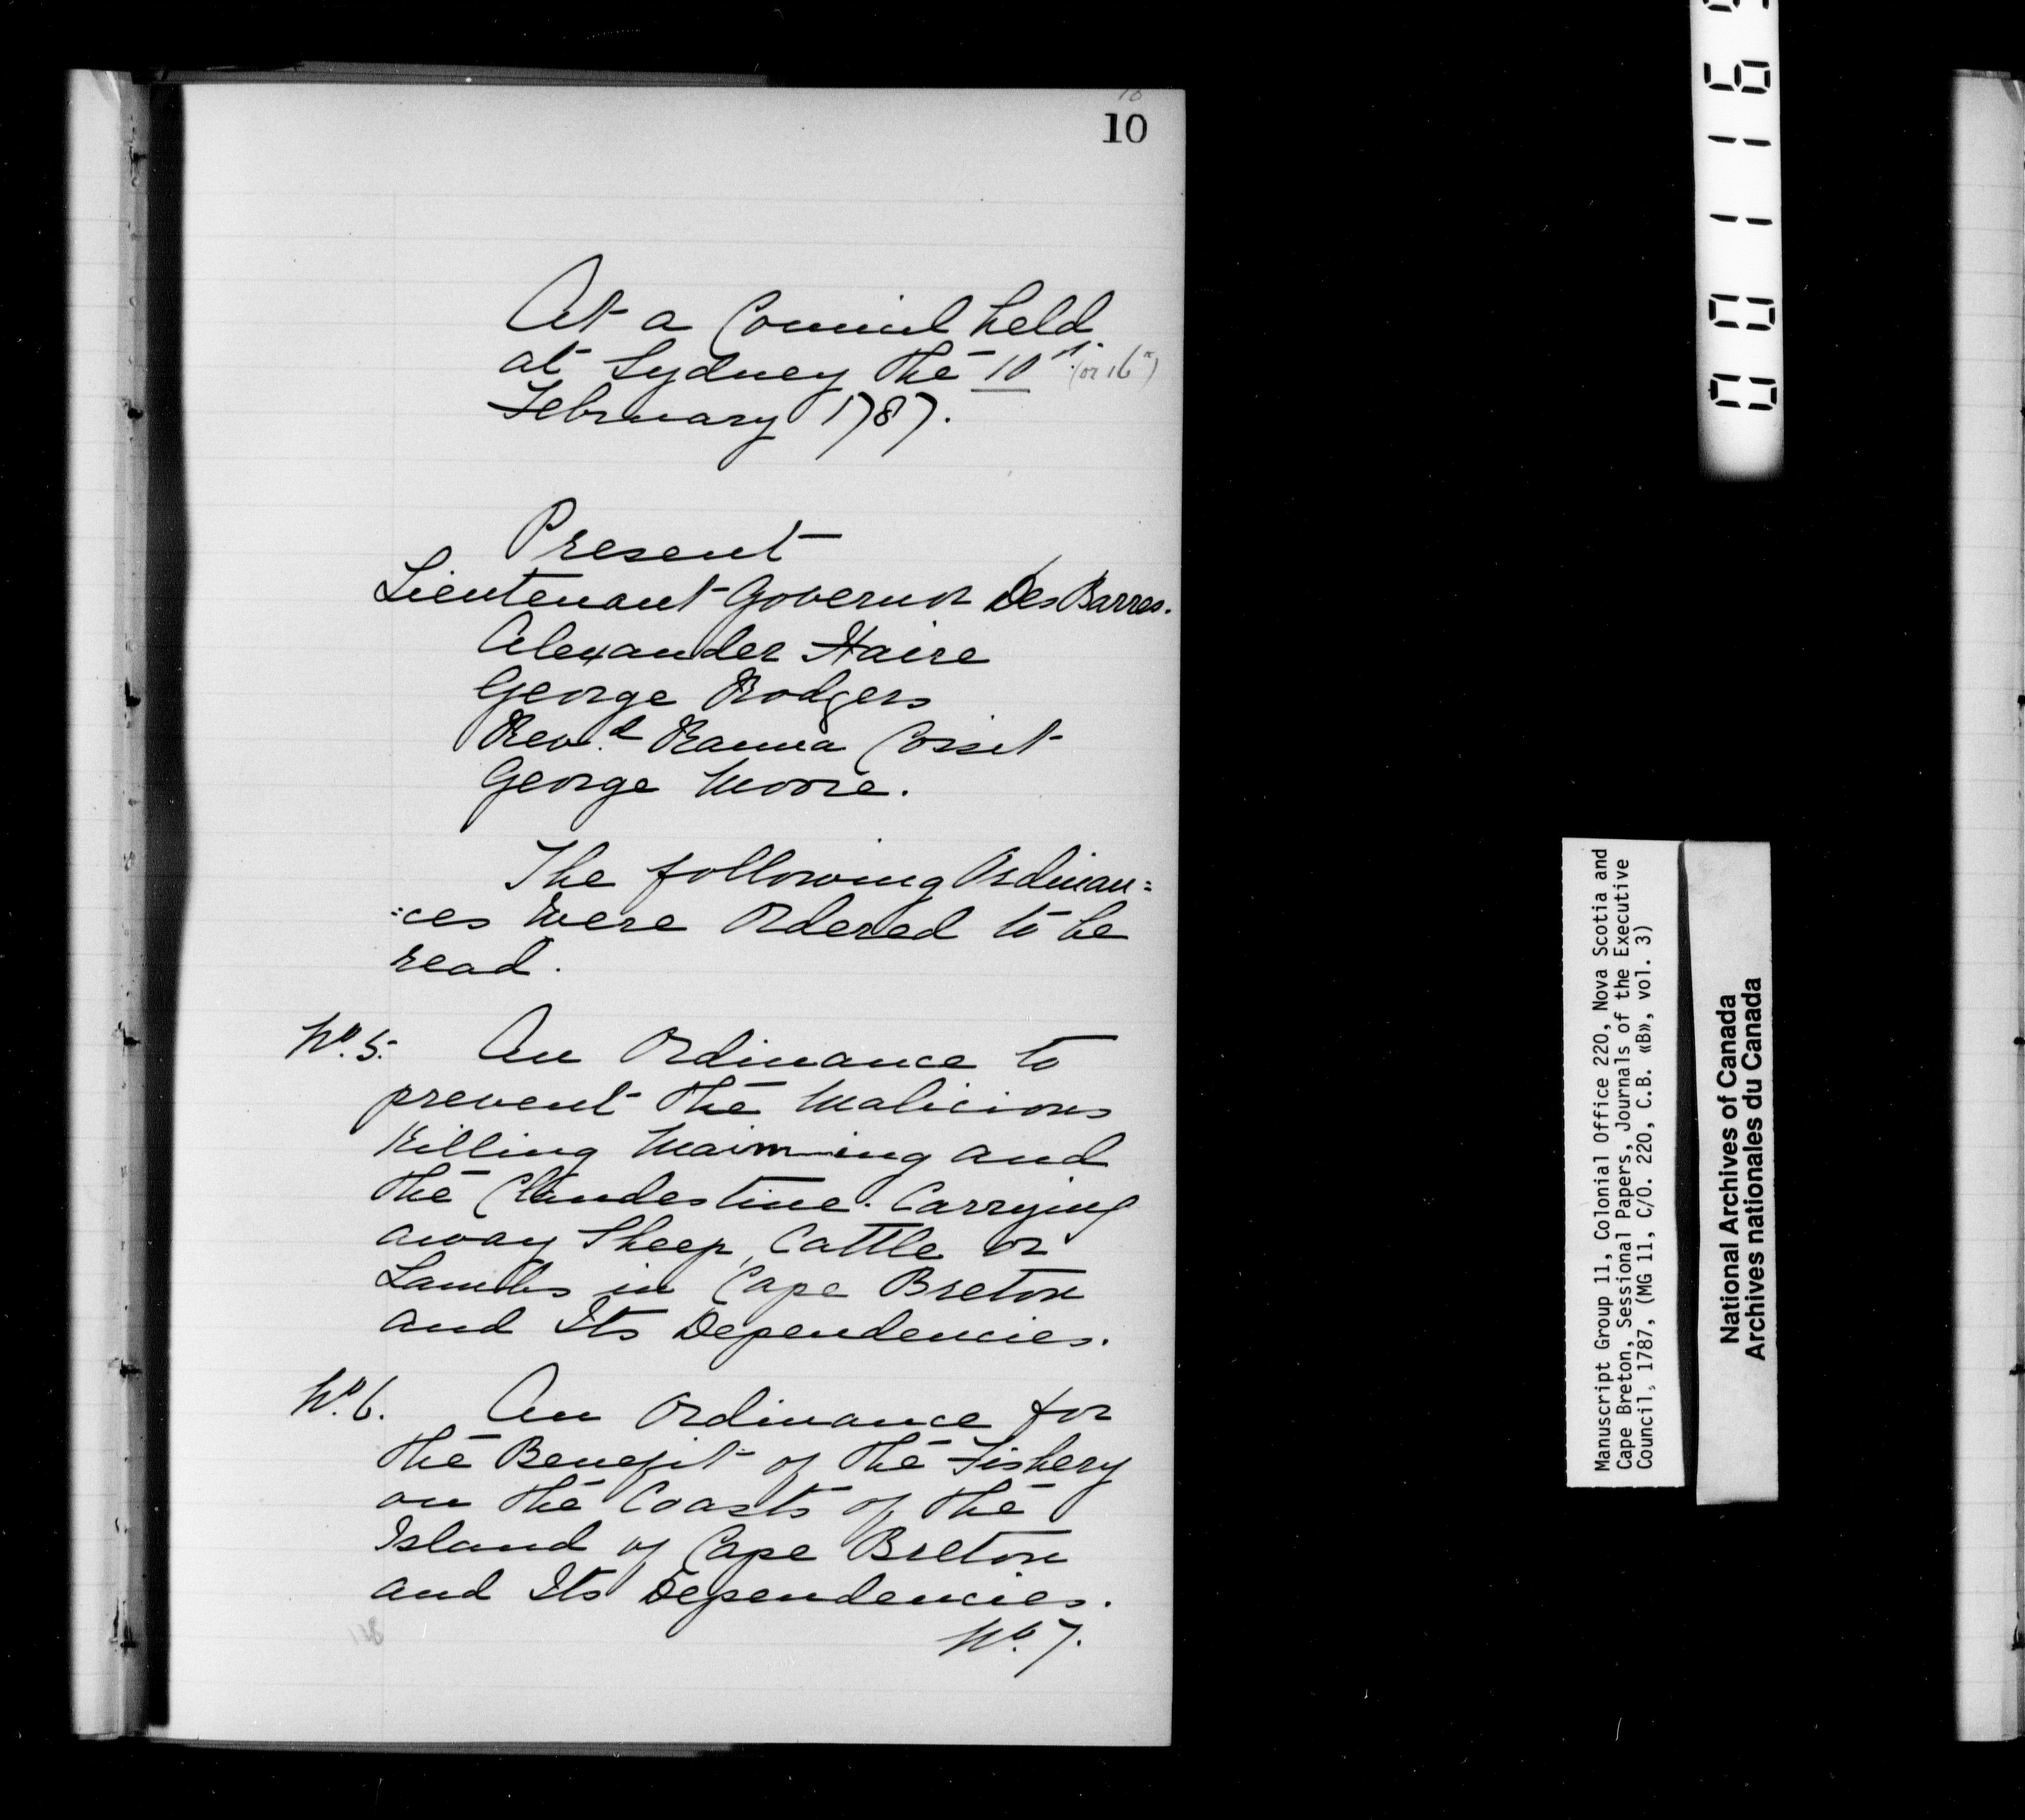 10
10
At a Council held
at Sydney the 10th (or 16th)
February 1787.
Present
Lieutenant Governor DesBarres.
Alexander Haire
George Rodgers
Rev.d Ranna Cossit
George Moore.
The following Ordinan=
=ces Were Ordered to be
read.
No. 5. An Ordinance to
prevent the Malicious
Killing Maiming and
the Clandestine Carrying
away Sheep, Cattle or
Lambs in Cape Breton
and Its Dependencies.
No. 6. An Ordinance for
the Benefit of the Fishery
on the Coasts of the
Island of Cape Breton
and Its Dependencies.
No. 7.
Manuscript Group 11, Colonial Office 220, Nova Scotia and
Cape Breton, Sessional Papers, Journals of the Executive
Council, 1787, (MG 11, C/O. 220, C.B. «B», vol. 3)
National Archives of Canada
Archives nationales du Canada